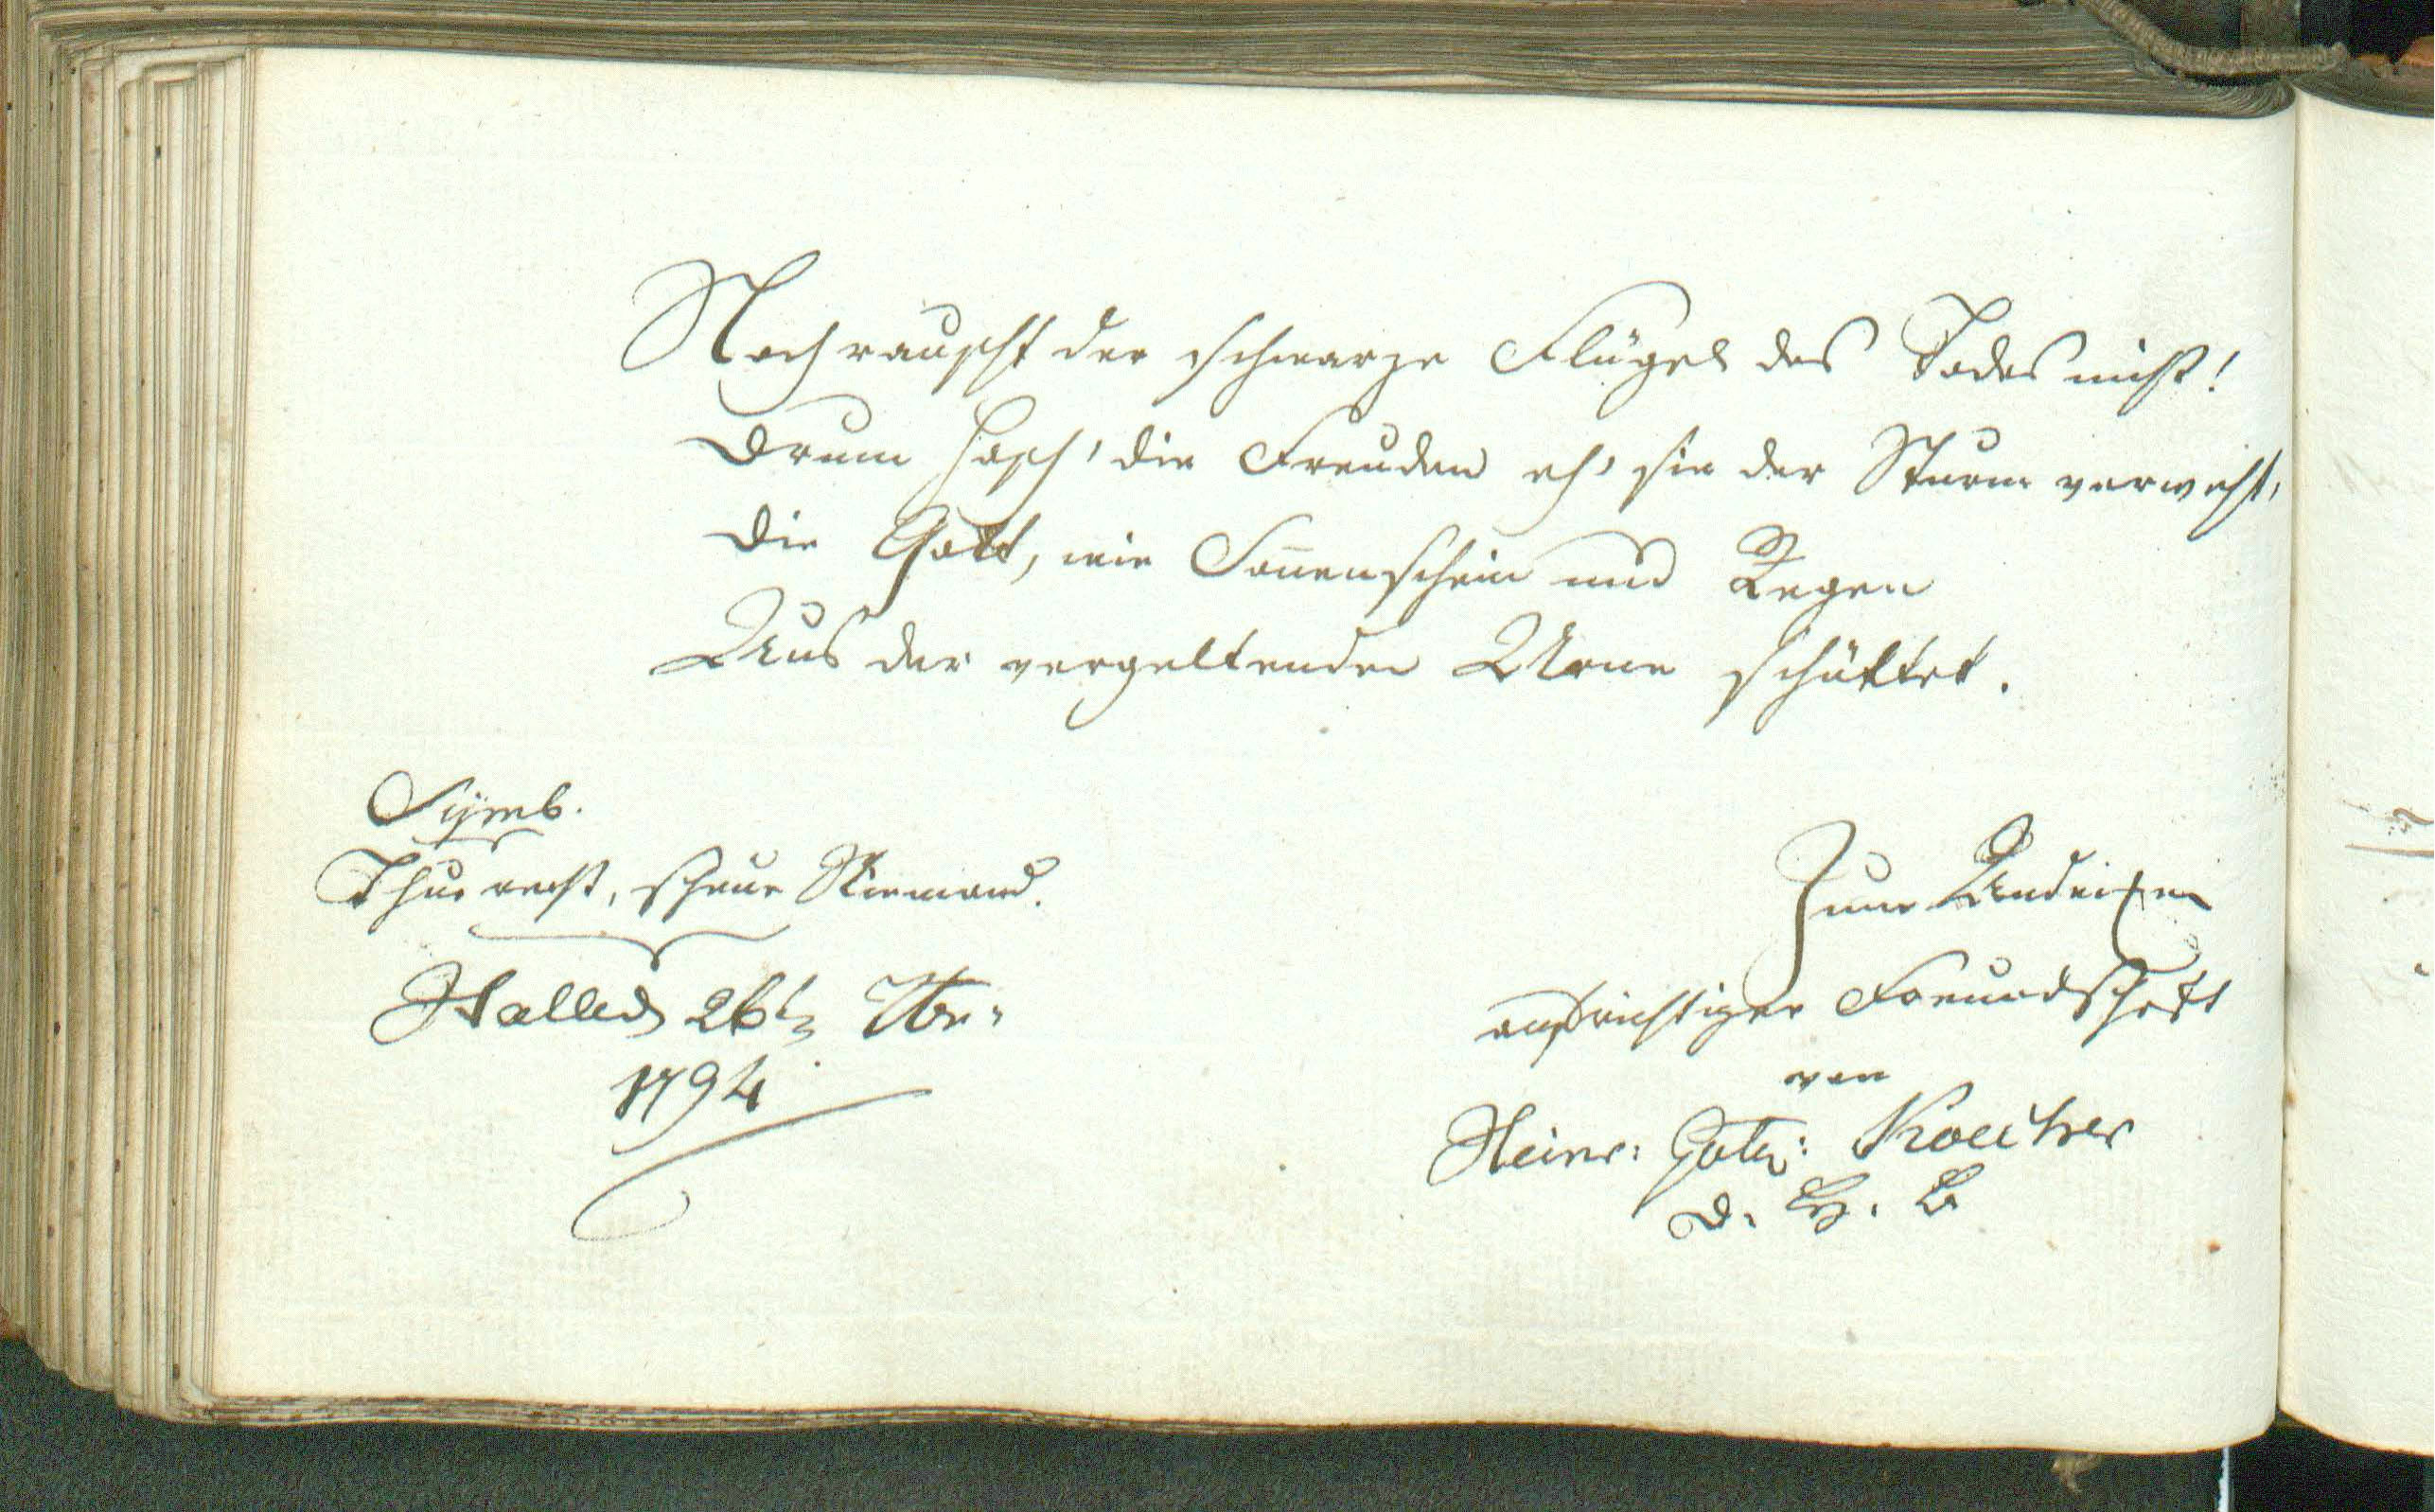 Noch rauscht der schwarze Flügel des Todes nicht!
Drum hasch' die Freuden eh' sie der Sturm verweht,
Die Gott, wie Soñenschein und Regen
Aus der vergeltenden Urne schüttet.
Symb.
Thue recht, scheue Niemand.
Halle d 26t 7br:
1794
Zum Andenken
aufrichtiger Freundschaft
von
Heinr: Gott:
d. G. B